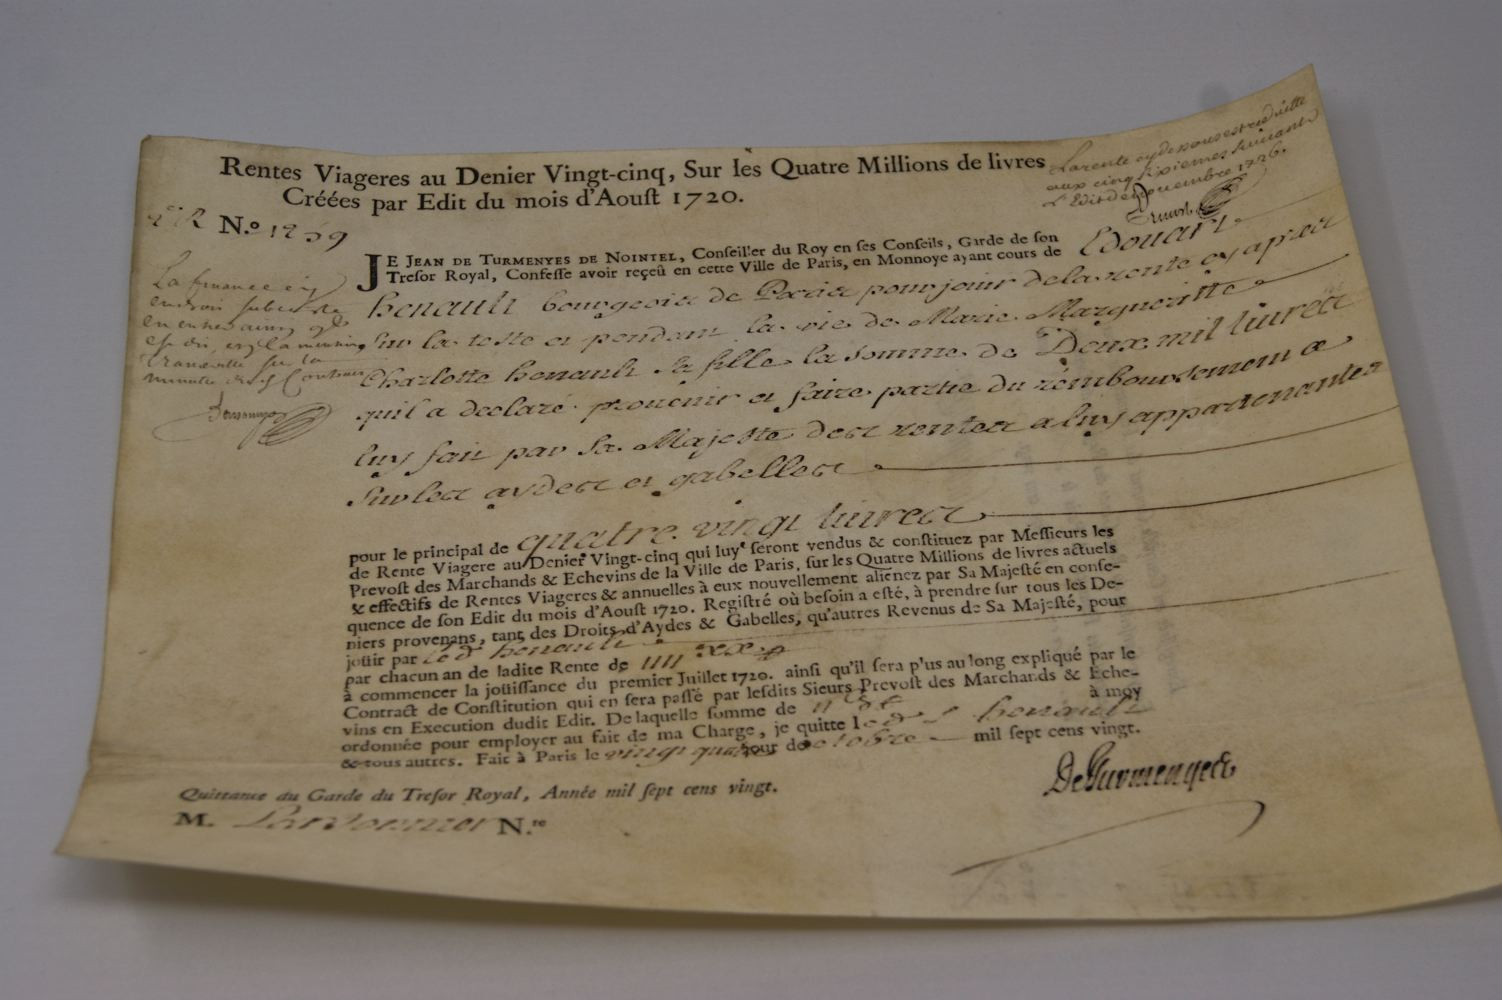 Rentes Viageres au Denier Vingt-cinq, Sur les Quatre Millions de livres
Créées par Edit du mois d'Aouſt 1720.
La rente cy dessus est reduitte
aux cinq sixiemes suivant
l'Edit de novembre 1726.
N.º 1259
JE JEAN DE TURMENYES DE NOINTEL, Conſeiller du Roy en ſes Conſeils, Garde de ſon
Treſor Royal, Confeſſe avoir reçeû en cette Ville de Paris, en Monnoye ayant cours de Edouart
henault bourgeois de Paris pour jouir de la rente cy apres
sur la teste et pendant la vie de Marie Margueritte
Charlotte henault sa fille la somme de Deux mil livres
quil a declaré prouenir et faire partie du remboursement a
luy fait par sa Majesté des rentes a luy appartenantes
sur les aydes et gabelles
La finance cy
minutte
pour le principal de quatre vingt livres
de Rente Viagere au Denier Vingt-cinq qui luy ſeront vendus & conſtituez par Meſſieurs les
Prevoſt des Marchands & Echevins de la Ville de Paris, ſur les Quatre Millions de livres actuels
& effectifs de Rentes Viageres & annuelles à eux nouvellement alienez par Sa Majeſté en conſe-
quence de ſon Edit du mois d'Aouſt 1720. Regiſtré où beſoin a eſté, à prendre ſur tous les De-
niers provenans, tant des Droits d'Aydes & Gabelles, qu'autres Revenus de Sa Majeſté, pour
joüir par led henault
par chacun an de ladite Rente de IIII XX
à commencer la joüiſſance du premier Juillet 1720. ainſi qu'il ſera plus au long expliqué par le
Contract de Conſtitution qui en ſera paſſé par leſdits Sieurs Prevoſt des Marchands & Eche-
vins en Execution dudit Edit. De laquelle ſomme de à moy
ordonnée pour employer au fait de ma Charge, je quitte led s henault
& tous autres. Fait à Paris le vingt quatre jour de octobre mil ſept cens vingt.
DeTurmenyes
Quittance du Garde du Treſor Royal, Année mil ſept cens vingt.
M. N.re